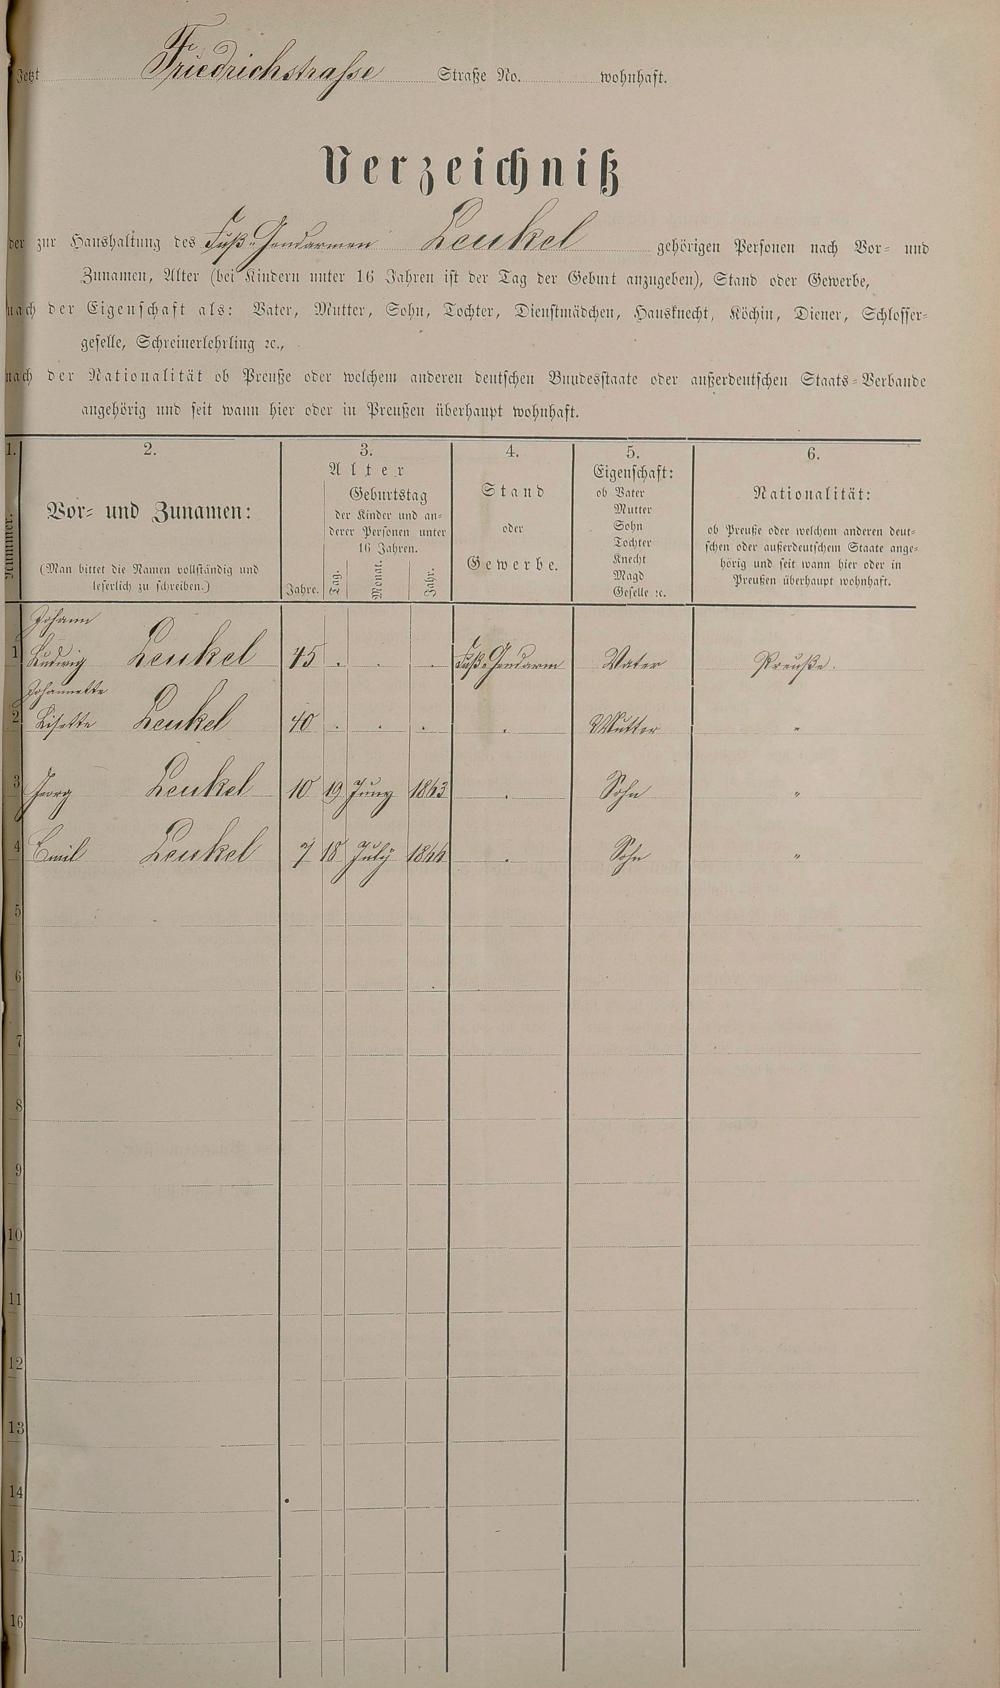 Jetzt Friedrichstrasse Straße No. wohnhaft.
Verzeichniß
der zur Haushaltung des Fuß-Gendarmen Leukel gehörigen Personen nach Vor- und
Zunamen, Alter (bei Kindern unter 16 Jahren ist der Tag der Geburt anzugeben), Stand oder Gewerbe,
nach der Eigenschaft als: Vater, Mutter, Sohn, Tochter, Dienstmädchen, Hausknecht, Köchin, Diener, Schlosser-
geselle, Schreinerlehrling ꝛc.,
nach der Nationalität ob Preuße oder welchem anderen deutschen Bundesstaate oder außerdeutschen Staats-Verbande
angehörig und seit wann hier oder in Preußen überhaupt wohnhaft.
1. 2. 3. 4. 5. 6.
Nummer.
Vor- und Zunamen:
(Man bittet die Namen vollständig und
leserlich zu schreiben.)
Alter
Geburtstag
der Kinder und an-
derer Personen unter
16 Jahren.
Jahre. Tag. Monat. Jahr.
Stand
oder
Gewerbe.
Eigenschaft:
ob Vater
Mutter
Sohn
Tochter
Knecht
Magd
Geselle ꝛc.
Nationalität:
ob Preuße oder welchem anderen deut-
schen oder außerdeutschem Staate ange-
hörig und seit wann hier oder in
Preußen überhaupt wohnhaft.
Johann
1 Ludwig Leukel 45 . . . Fuß-Gendarm Vater Preuße.
Johannette
2 Lisette Leukel 40 . . . . Mutter "
3 Georg Leukel 10 19 Juny 1863 . Sohn "
4 Emil Leukel 7 18 July 1866 . Sohn "
5
6
7
8
9
10
11
12
13
14
15
16